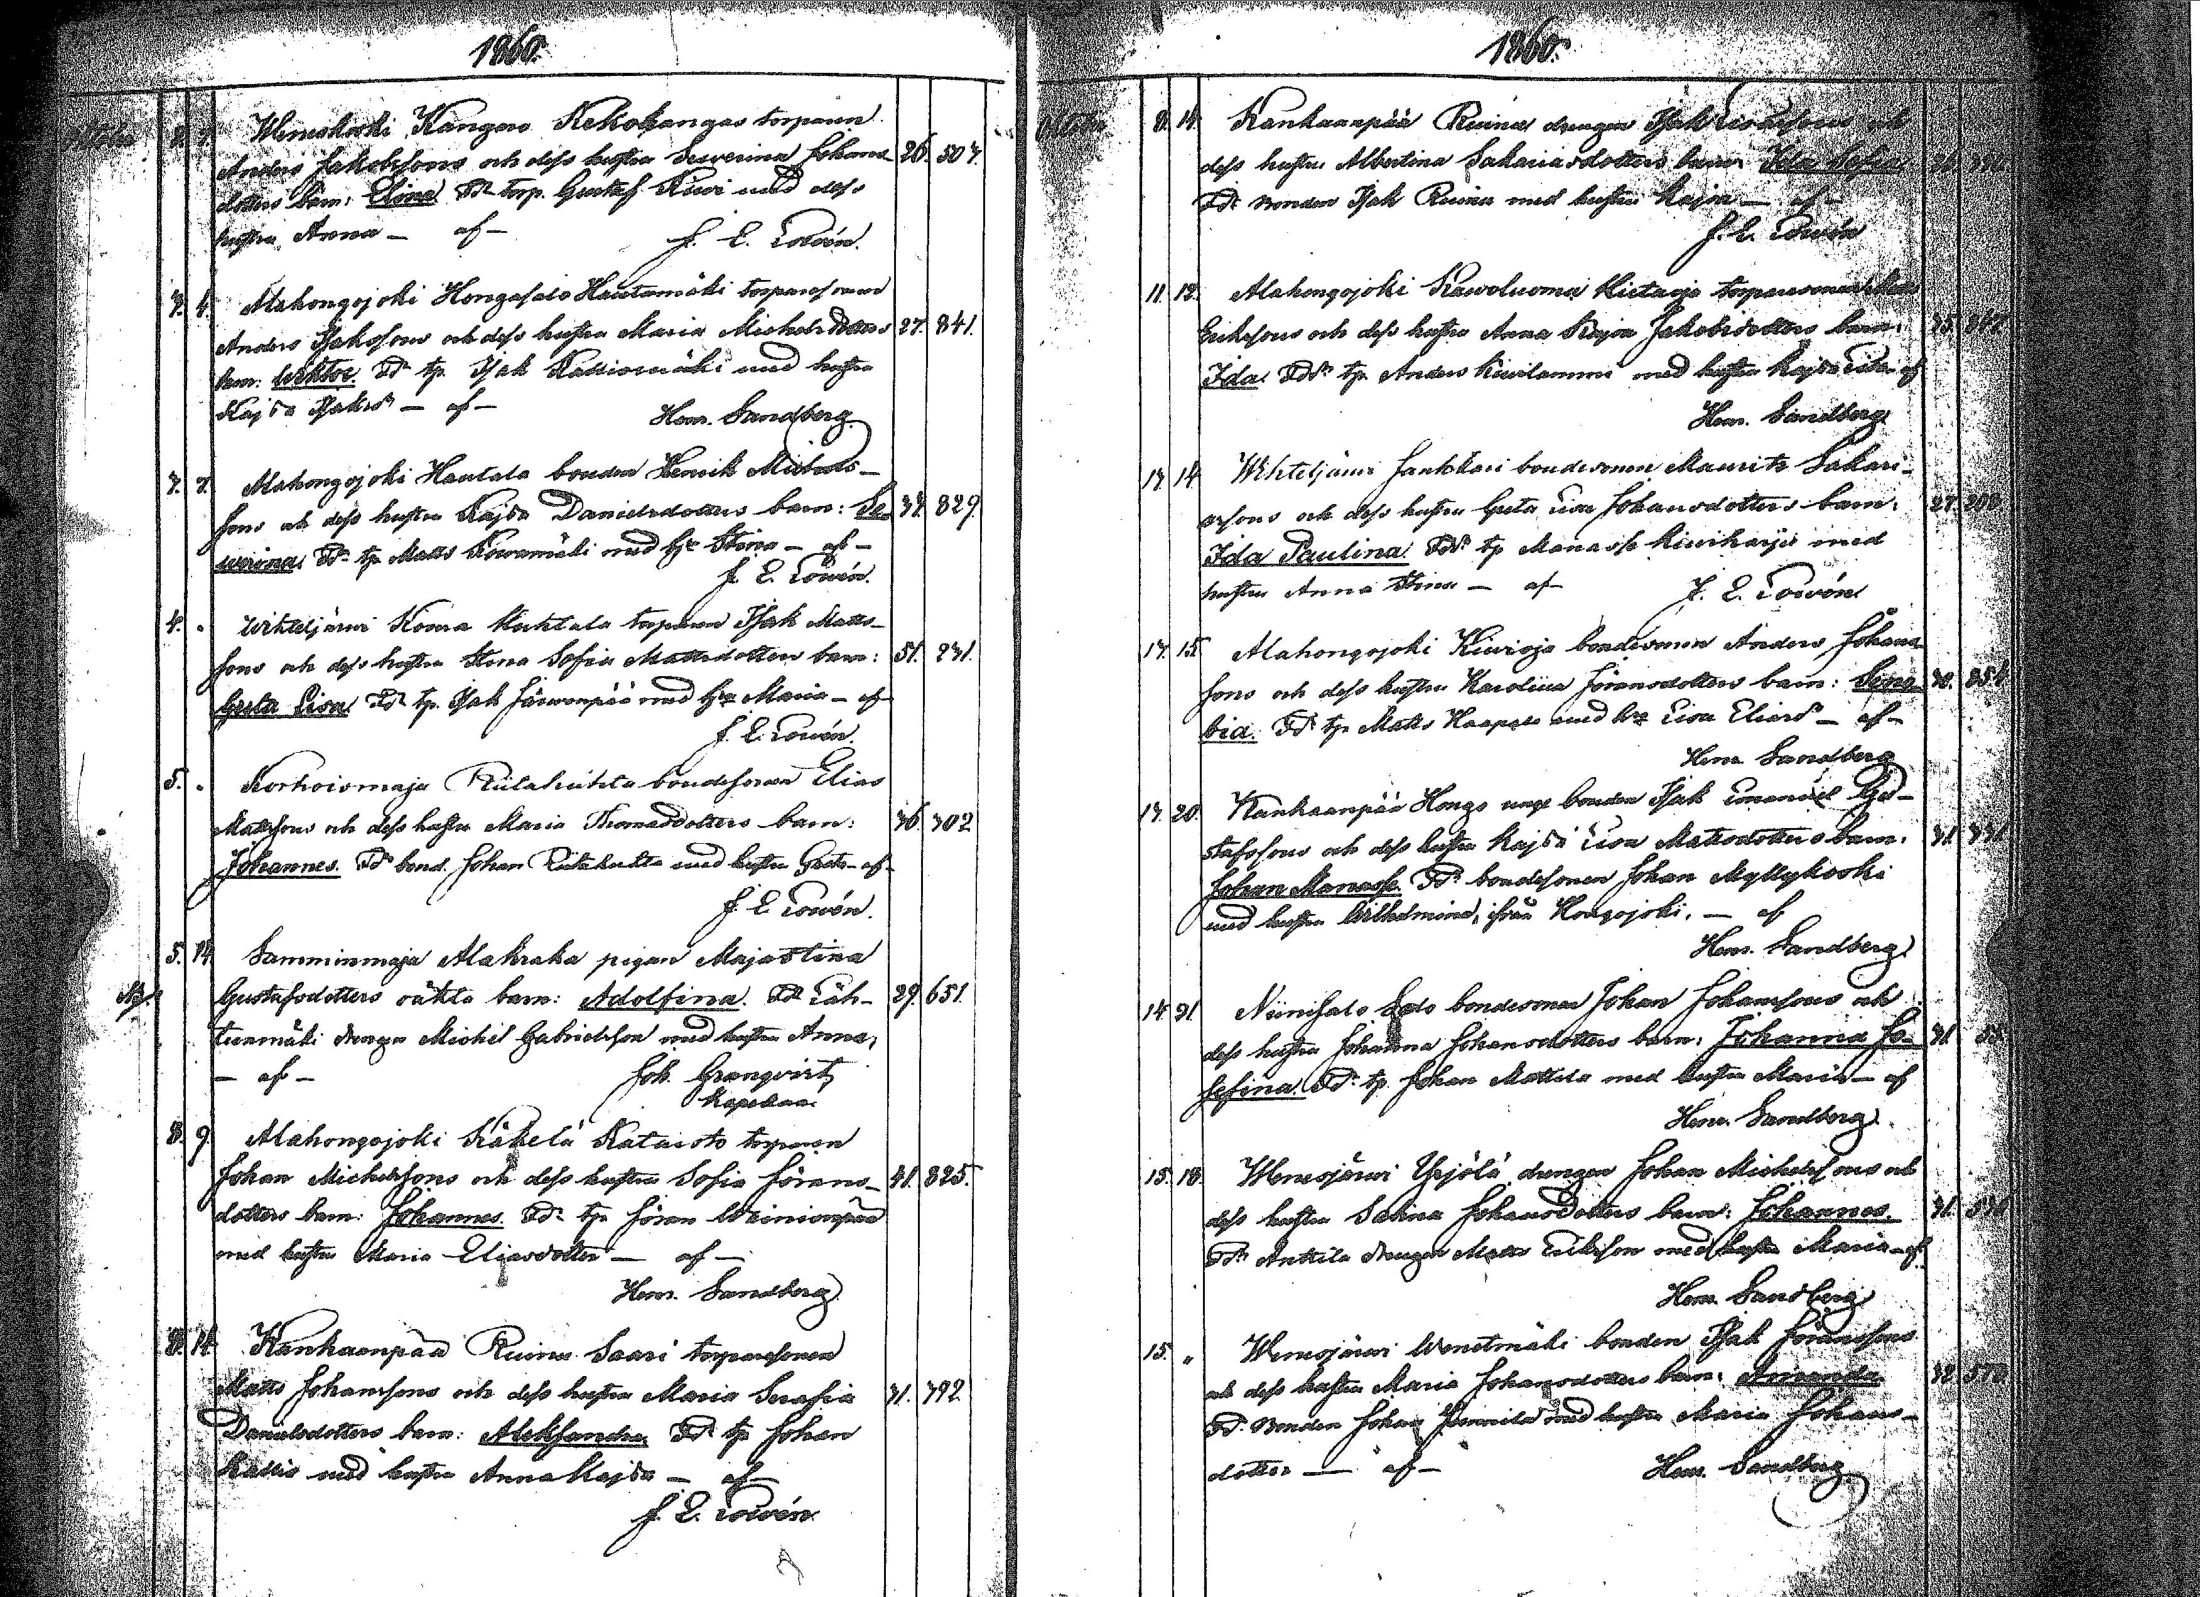 1860.
2. 7. Weneskoski Kangas Kekokangas torparen
Anders Jakobssons och dess hustru Severina Johans- 26. 507.
dotters barn: Elina. Fdr torp. Gustaf Kiwi med dess
hustru Anna — af —
J. E. Lowén.
3. 4. Alahongojoki Hongasalo Hautamäki torparesonen
Anders Isakssons och dess hustru Maria Michelsdotters 27. 841.
barn: Wiktor. Fdr tp. Isak Kalliomäki med hustru
Kajsa Isaksdr — af —
Henr. Sandberg.
7. 7. Alahongojoki Hautala bonden Henrik Michels-
sons och dess hustru Kajsa Danielsdotters barn: Se- 37. 829.
werina. Fdr tp. Matts Kowamäki med h:u Stina — af —
J. E. Lowén.
4. " Wihteljärwi Koura Kuhtala torparen Isak Matts-
sons och dess hustru Stina Sofia Mattsdotters barn: 51. 231.
Greta Lisa. Fdr tp. Isak Järwenpää med h:u Maria — af —
J. E. Lowén.
5. " Korhoismaja Riitahuhta bondesonen Elias
Mattssons och dess hustru Maria Thomasdotters barn: 36. 302
Johannes. Fdr bond. Johan Riitahuhta med hustru Greta — af —
J. E. Lowén.
5. 14 Samminmaja Alakraka pigan Maja Stina
Gustafsdotters oäkta barn: Adolfina. Fdr Läh- 29. 651.
teenmäki drengen Michel Gabrielsson med hustru Anna,
— af — Joh. Granqvist,
Kapellan.
8. 9. Alahongojoki Käkelä Kataisto torparen
Johan Michelssons och dess hustru Sofia Jörans- 41. 825.
dotters barn: Johannes. Fdr tp. Jöran Wainionpää
med hustru Maria Eliasdotter — af —
Henr. Sandberg.
8. 14. Kankaanpää Ruina Saari torparesonen
Matts Johanssons och dess hustru Maria Serafia 31. 392
Danielsdotters barn: Aleksandra. Fdr tp. Johan
Kallio med hustru Anna Kajsa — af —
J. E. Lowén.
1860.
8. 14. Kankaanpää Ruina drengen Isak och
dess hustru Albertina Sakariasdotters barn: Ida Sofia
Fdr Bonden Isak Ruina med hustru Kajsa — af —
J. E. Lowén
11. 12. Alahongojoki Rawoluoma Kietaoja torparesonen
Erikssons och dess hustru Anna Kajsa Jakobsdotters barn:
Ida. Fdr tp. Anders Kiwilammi med hustru Kajsa Lisa — af
Henr. Sandberg.
13. 14. Wihteljärwi Jankkari bondesonen Mauritz Sakari-
assons och dess hustru Greta Lisa Johansdotters barn: 27.
Ida Paulina. Fdr tp. Manasse Kiwiharju med
hustru Anna Stina — af —
J. E. Lowén
13. 15. Alahongojoki Kiwioja bondesonen Anders Johans-
sons och dess hustru Karolina Jöransdotters barn: Sera-
bia. Fdr tp. Matts Haapala med h:u Lisa Eliasdr — af —
Henr. Sandberg
13. 20. Kankaanpää Hongo unge bonden Isak Emanuel Gu-
stafssons och dess hustru Kajsa Lisa Mattsdotters barn: 31. 331.
Johan Manasse. Fdr bondesonen Johan Myllykoski
med hustru Wilhelmina, ifrån Hongojoki, — af
Henr. Sandberg
14. 21. Niinisalo Salo bondesonen Johan Johanssons och
dess hustru Johanna Johansdotters barn: Johanna Jo- 31.
sefina. Fdr tp. Johan Mattila med hustru Maria — af
Henr. Sandberg.
15. 18. Wenesjärwi Yrjölä drengen Johan Michelssons och
dess hustru Salina Johansdotters barn: Johannes. 31.
Fdr Anttila drengen Matts Eriksson med hustru Maria — af
Henr. Sandberg
15. " Wenesjärwi Wenetmäki bonden Isak Jöranssons
och dess hustru Maria Johansdotters barn: Amanda.
Fdr Bonden Johan med hustru Maria Johans-
dotter — af —
Henr. Sandberg